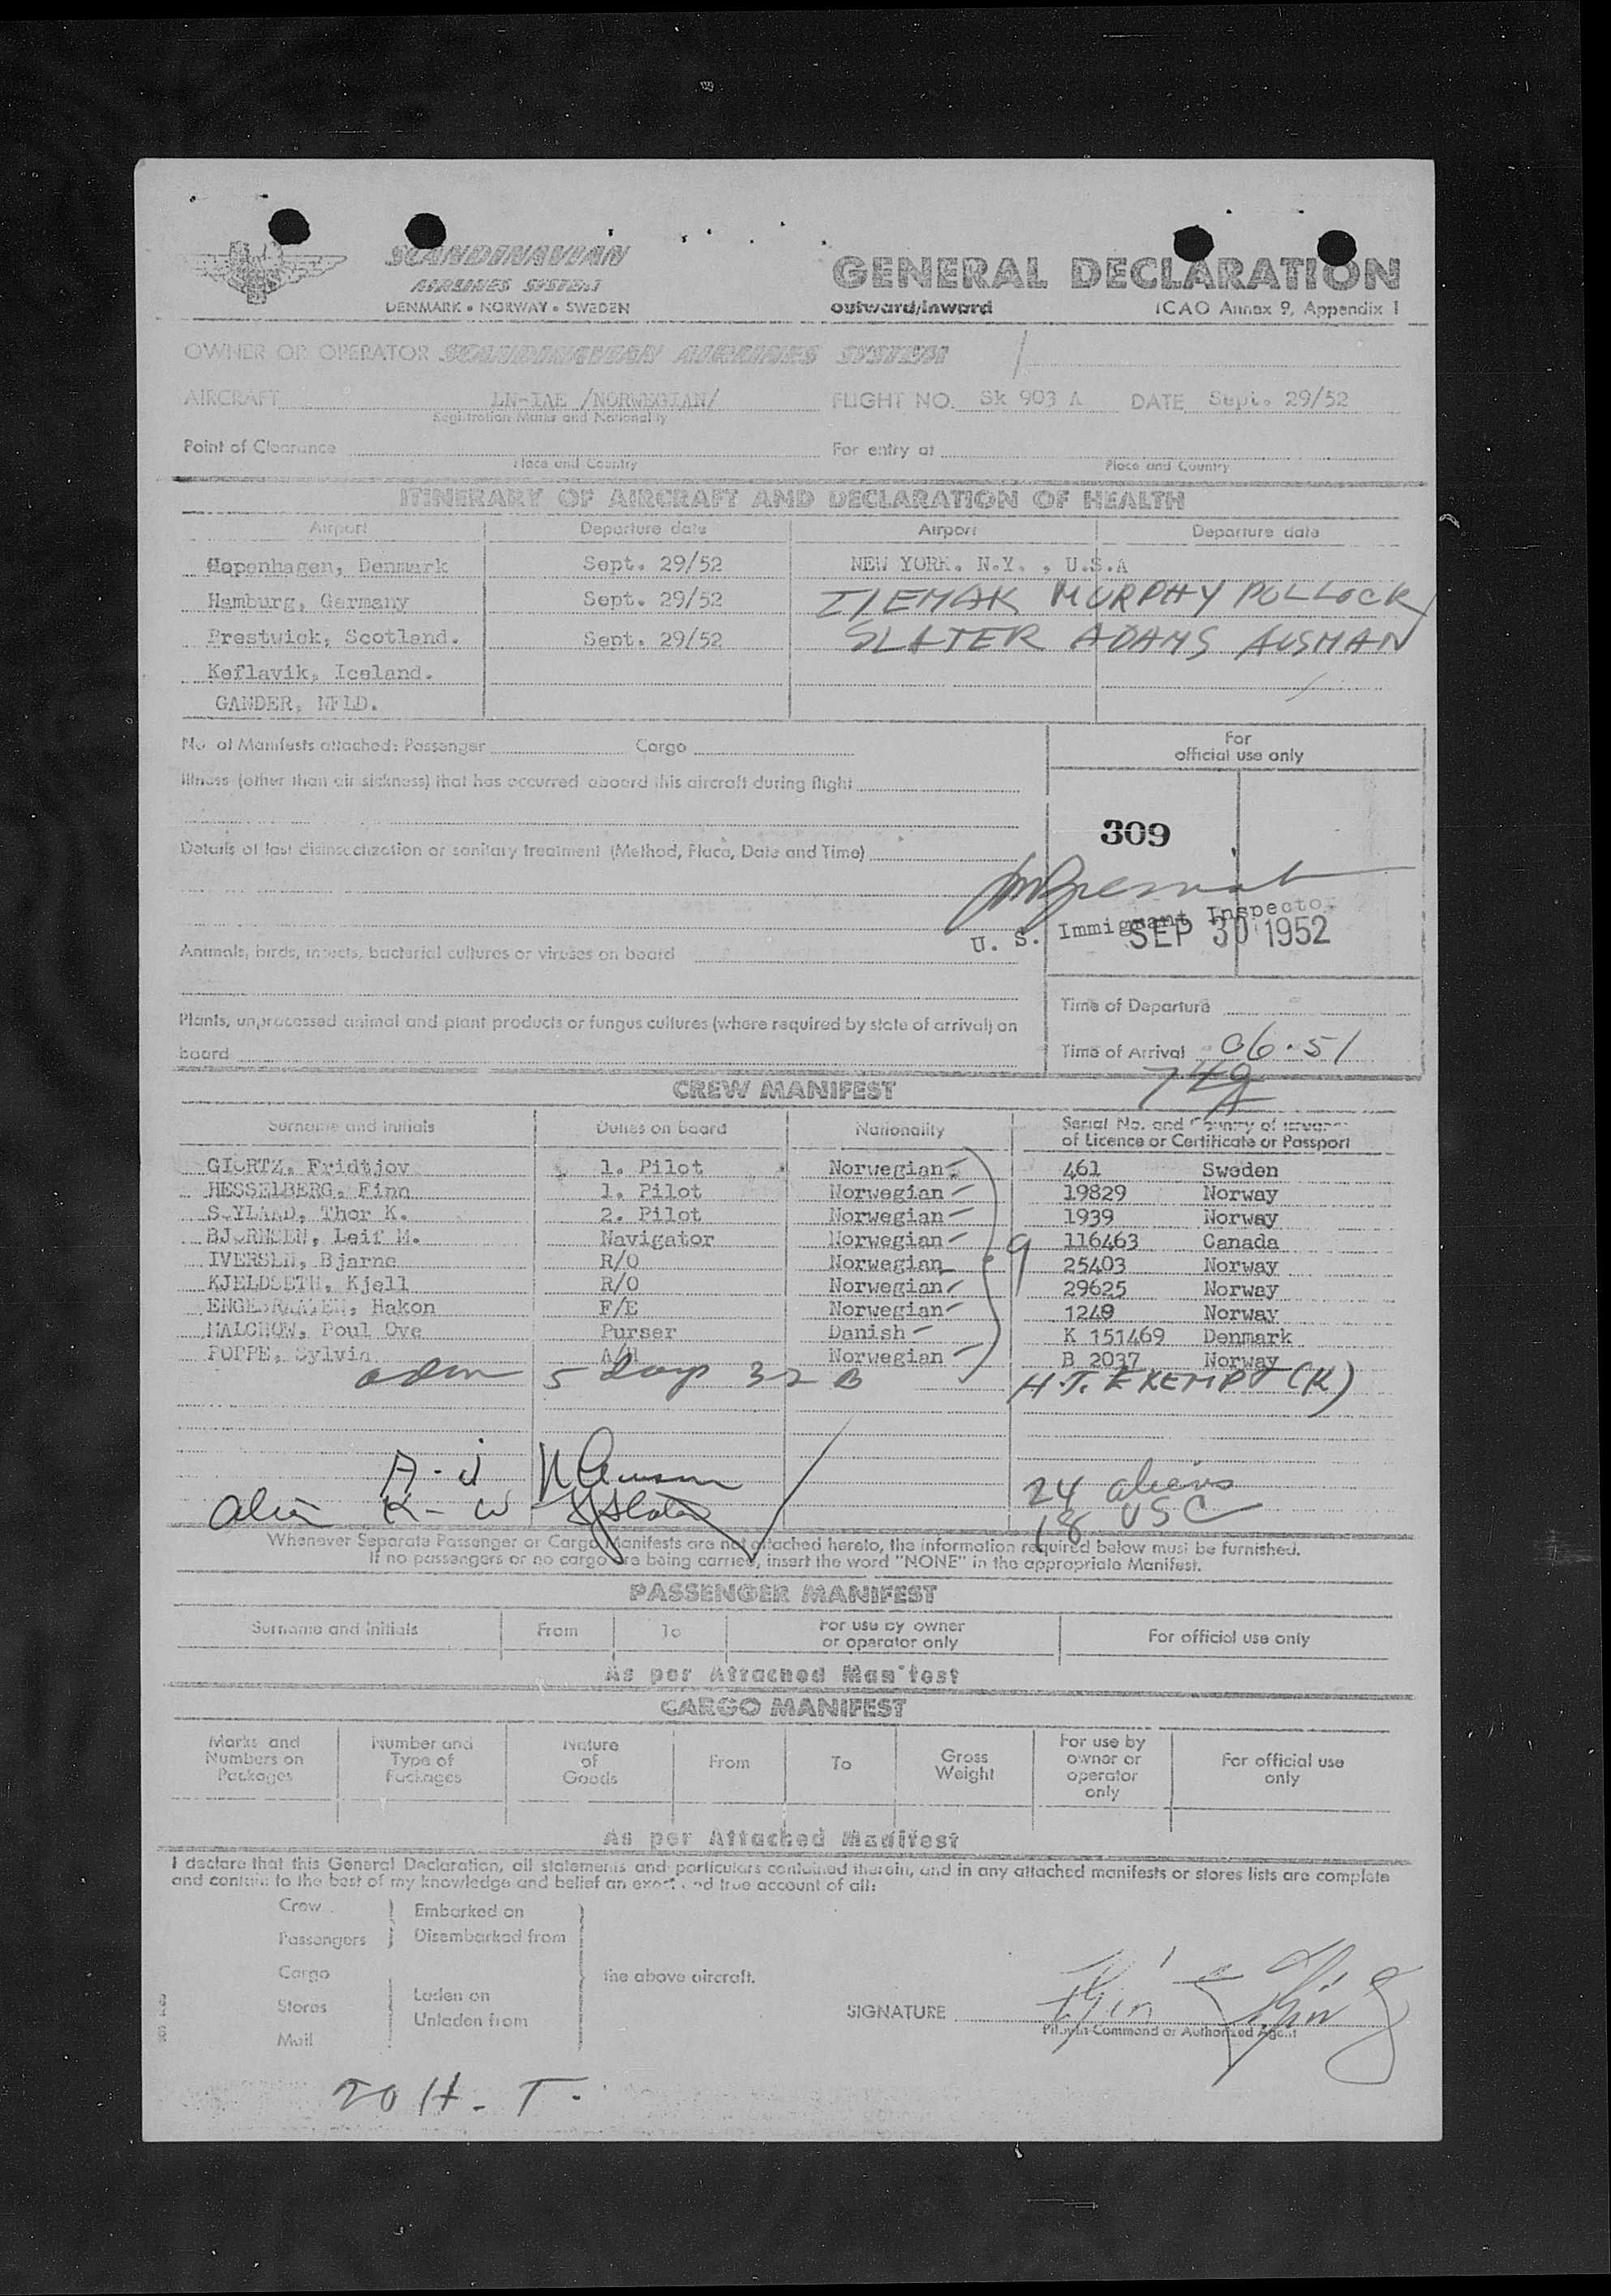 SCANDINAVIAN
AIRLINES SYSTEM
DENMARK • NORWAY • SWEDEN
GENERAL DECLARATION
outward/inward
ICAO Annex 9, Appendix 1
OWNER OR OPERATOR SCANDINAVIAN AIRLINES SYSTEM
AIRCRAFT LN-IAE /NORWEGIAN/ FLIGHT NO. Sk 903 A DATE Sept. 29/52
Registration Marks and Nationality
Point of Clearance For entry at
Place and Country Place and Country
ITINERARY OF AIRCRAFT AND DECLARATION OF HEALTH
Airport Departure date Airport Departure date
Copenhagen, Denmark Sept. 29/52 NEW YORK. N.Y. , U.S.A
Hamburg, Germany Sept. 29/52 MURPHY POLLOCK
Prestwick, Scotland. Sept. 29/52 SLATER ADAMS AUSMAN
Keflavik, Iceland.
GANDER, NFLD.
No. of Manifests attached: Passenger Cargo
For
official use only
Illness (other than air sickness) that has occurred aboard this aircraft during flight
309
Details of last disinsectization or sanitary treatment (Method, Place, Date and Time)
U. S. Immigrant Inspector
SEP 30 1952
Animals, birds, insects, bacterial cultures or viruses on board
Time of Departure
Plants, unprocessed animal and plant products or fungus cultures (where required by state of arrival) on
board
Time of Arrival 06.51
CREW MANIFEST
Surname and Initials Duties on board Nationality Serial No. and Country of issuance
of Licence or Certificate or Passport
GIØRTZ, Fridtjov 1. Pilot Norwegian 461 Sweden
HESSELBERG, Finn 1. Pilot Norwegian 19829 Norway
Thor K. 2. Pilot Norwegian 1939 Norway
BJØRNSEN, Leif M. Navigator Norwegian 116463 Canada
IVERSEN, Bjarne R/O Norwegian 9 25403 Norway
KJELDSETH, Kjell R/O Norwegian 29625 Norway
Hakon F/E Norwegian 1248 Norway
MALCHOW, Poul Ove Purser Danish K 151469 Denmark
POPPE, Sylvia A/H Norwegian B 2037 Norway
adm 5 days 32 B H.T. EXEMPT (K)
A - J
24 aliens
alien K - W
18 USC
Whenever Separate Passenger or Cargo Manifests are not attached hereto, the information required below must be furnished.
If no passengers or no cargo are being carried, insert the word "NONE" in the appropriate Manifest.
PASSENGER MANIFEST
Surname and Initials From To For use by owner
or operator only For official use only
As per Attached Manifest
CARGO MANIFEST
Marks and
Numbers on
Packages Number and
Type of
Packages Nature
of
Goods From To Gross
Weight For use by
owner or
operator
only For official use
only
As per Attached Manifest
I declare that this General Declaration, all statements and particulars contained therein, and in any attached manifests or stores lists are complete
and contain to the best of my knowledge and belief an exact and true account of all:
Crew
Passengers
Embarked on
Disembarked from
Cargo
Stores
Mail
Laden on
Unladen from
the above aircraft.
SIGNATURE
Pilot in Command or Authorized Agent
20 H. T.